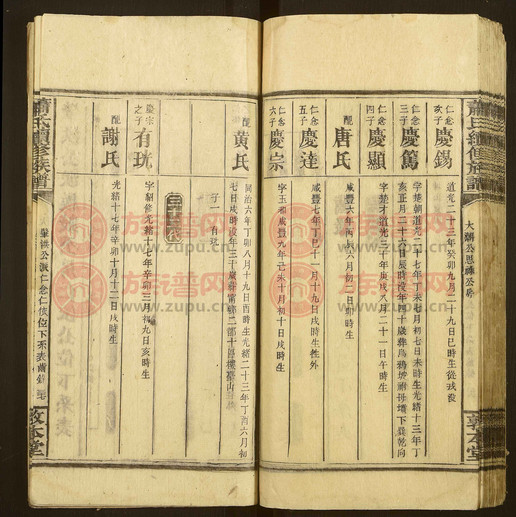 蕭氏續修族譜
敦本堂
仁念次子 慶錫 道光二十三年癸卯九月二十九日巳時生從戎沒
仁念三子 慶篤 字楚朝道光二十七年丁未七月初七日未時生光緒十三年丁
亥正月二十六日辰時沒年四十歲葬烏鴉坵祔母墳下艮乾向
仁念四子 慶顯 字楚才道光三十年庚戌八月二十一日午時生
配 唐氏 咸豐六年丙辰六月初二日戌時生
仁念五子 慶達 咸豐七年丁巳十一月十九日戌時生外
仁念六子 慶宗 字玉湘咸豐九年己未十月初十日戌時生
配 黄氏 同治九年庚午十八月十九日酉時生光緒二十三年丁酉六月初
七日戌時沒年三十歲葬
子一 有珖
三十二代
慶宗之子 有珖 字駰修光緒十七年辛卯三月初九日亥時生
配 謝氏 光緒十七年辛卯十月十二日戌時生
蕭氏續修族譜
仁念仁俊位下禾表蕭錦
敦本堂
族譜网
www.zupu.cn